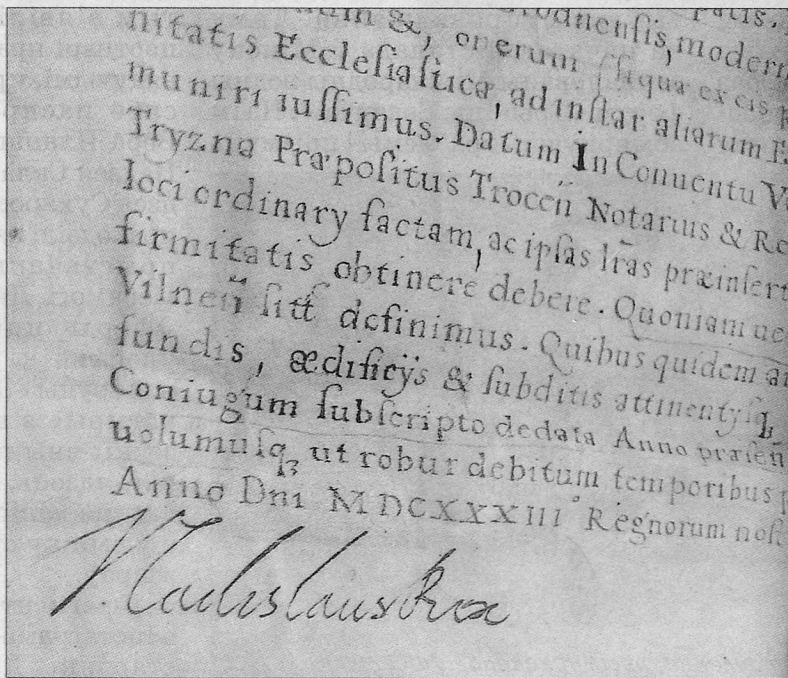 Grodnensis, modern
nitatis Eccleſiaſticæ, ad inſtar aliarum E
muniri iuſſimus. Datum In Conuentu V
Tryzna Præpoſitus Trocen̄ Notarius & Re
loci ordinary factam, ac ipſas lr̃as præinſert
firmitatis obtinere debere. Quoniam ue
Vilnen̄ ſitt̃ definimus. Quibus quidem
fundis, ædificÿs & ſubditis attinentyſq₃
Coniugum ſubſcripto dedata Anno præſen
uolumuſq₃ ut robur debitum temporibus
Anno Dn̄i MDCXXXIII° Regnorum noſt
Vladislaus Rex